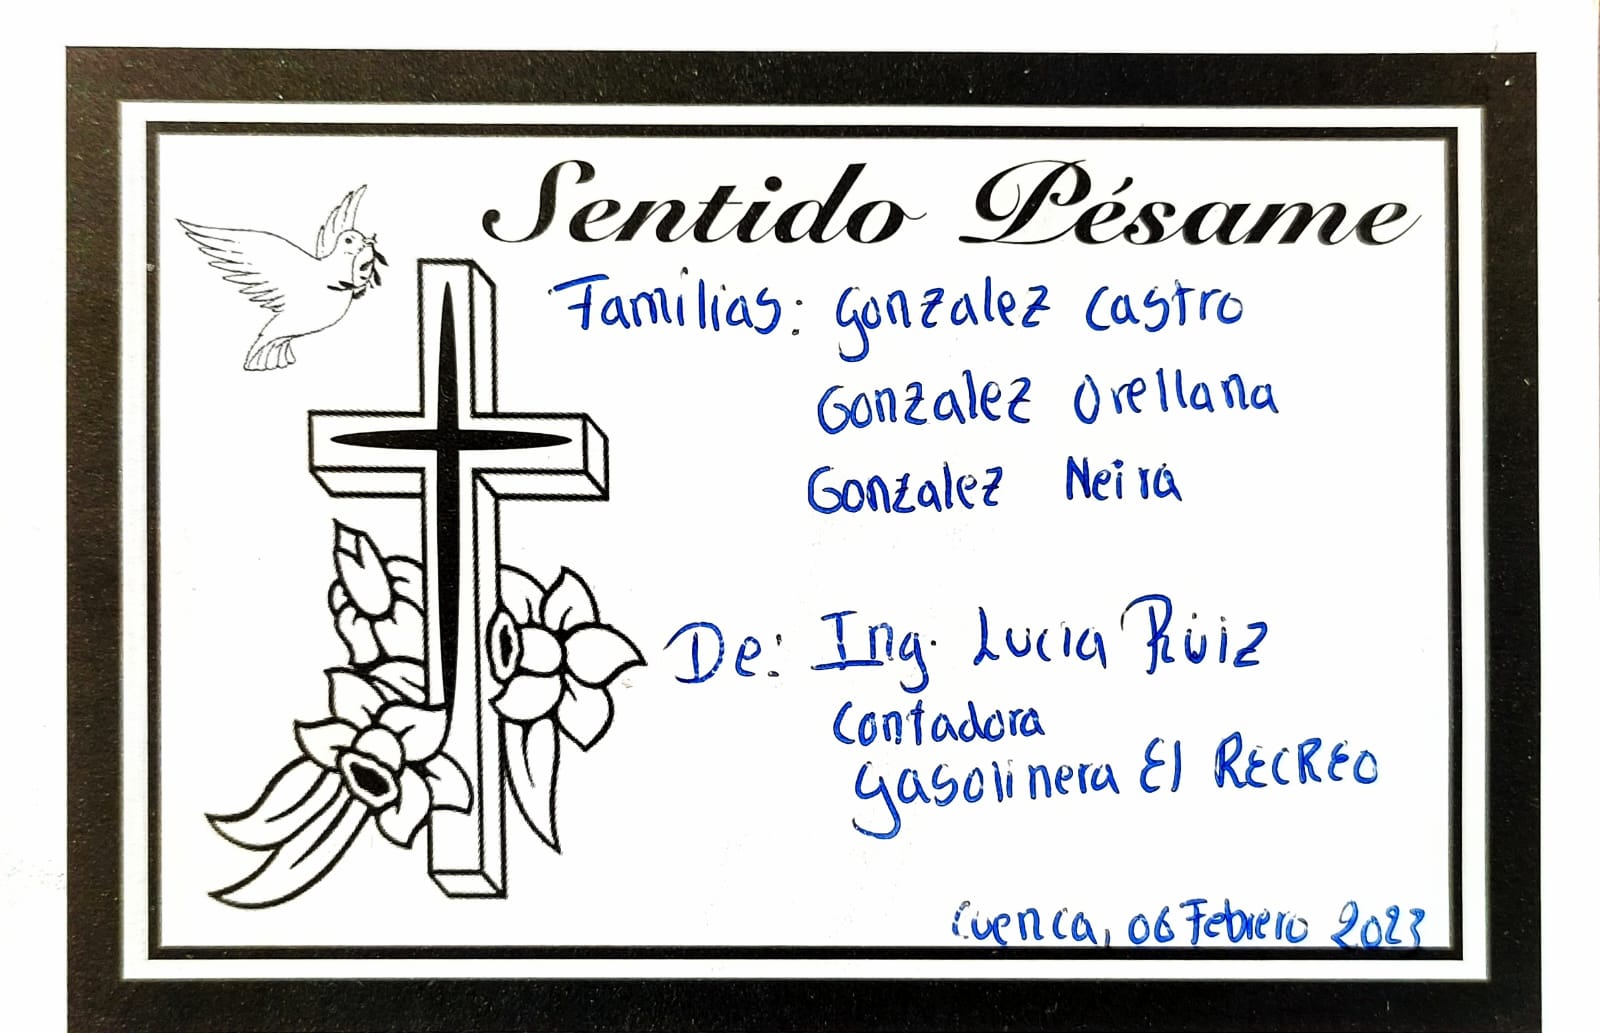 Sentido Pésame
Familias: Gonzalez Castro
Gonzalez Orellana
Gonzalez Neira
De: Ing. Lucia Ruiz
Contadora
Gasolinera El RECREO
Cuenca, 06 Febrero 2023